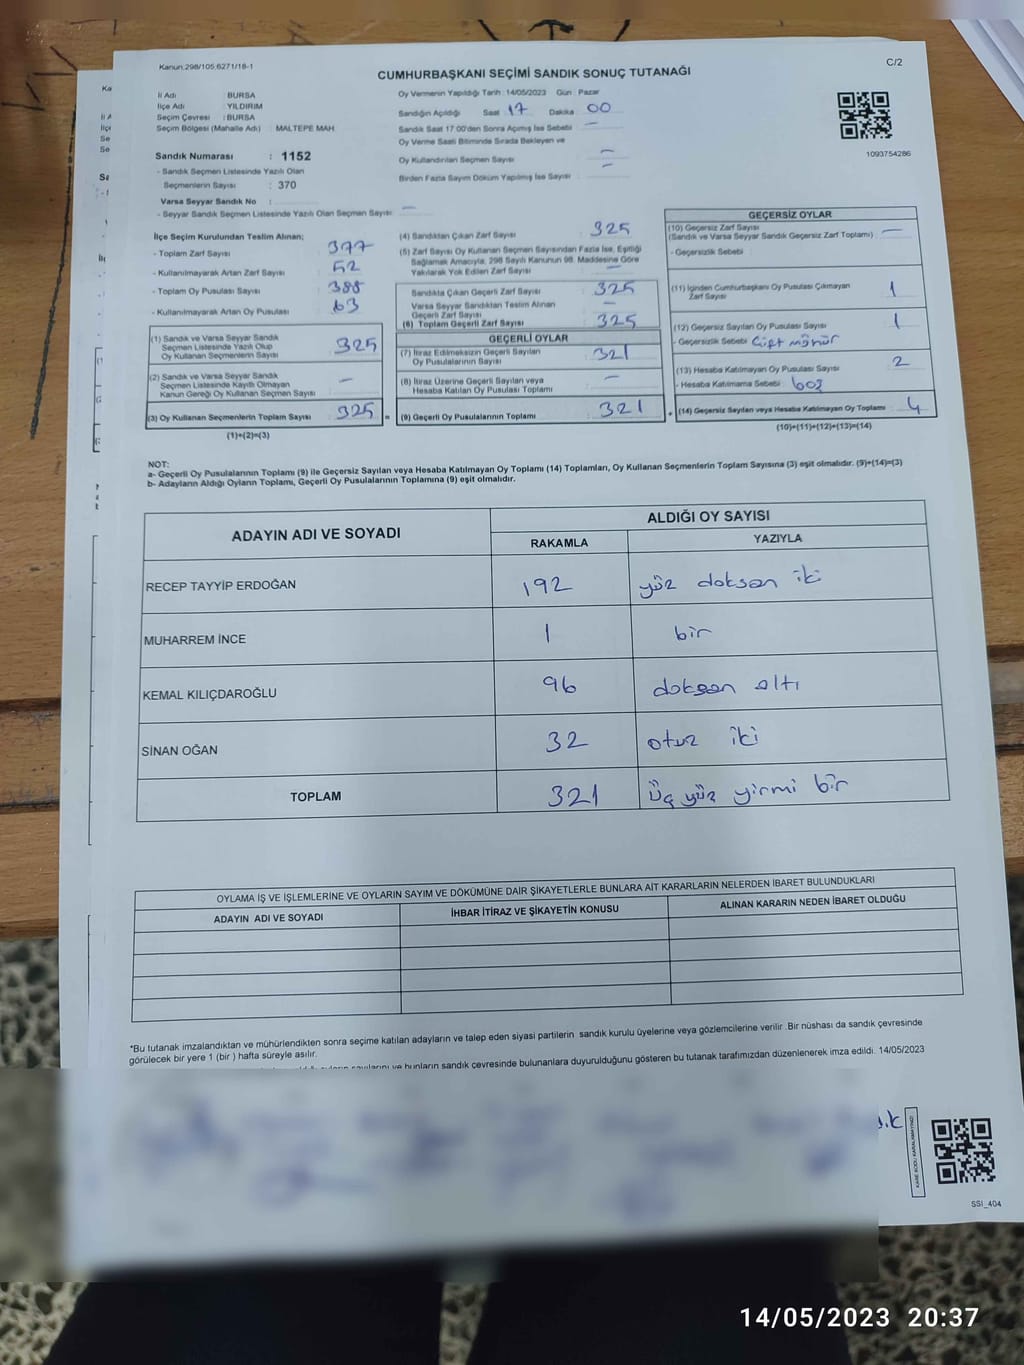 Kanun:298/105,6271/18-1
C/2
CUMHURBAŞKANI SEÇİMİ SANDIK SONUÇ TUTANAĞI
İl Adı : BURSA
İlçe Adı : YILDIRIM
Seçim Çevresi : BURSA
Seçim Bölgesi (Mahalle Adı) : MALTEPE MAH.
Sandık Numarası : 1152
- Sandık Seçmen Listesinde Yazılı Olan
Seçmenlerin Sayısı : 370
Varsa Seyyar Sandık No :
- Seyyar Sandık Seçmen Listesinde Yazılı Olan Seçmen Sayısı: —
Oy Vermenin Yapıldığı Tarih : 14/05/2023 Gün : Pazar
Sandığın Açıldığı Saat 17 Dakika 00
Sandık Saat 17:00'den Sonra Açımış İse Sebebi : —
Oy Verme Saati Bitiminde Sırada Bekleyen ve
Oy Kullandırılan Seçmen Sayısı : —
Birden Fazla Sayım Döküm Yapılmış İse Sayısı : —
1093754286
İlçe Seçim Kurulundan Teslim Alınan;
- Toplam Zarf Sayısı : 377
- Kullanılmayarak Artan Zarf Sayısı : 52
- Toplam Oy Pusulası Sayısı : 388
- Kullanılmayarak Artan Oy Pusulası : 63
(1) Sandık ve Varsa Seyyar Sandık
Seçmen Listesinde Yazılı Olup
Oy Kullanan Seçmenlerin Sayısı : 325
(2) Sandık ve Varsa Seyyar Sandık
Seçmen Listesinde Kayıtlı Olmayan
Kanun Gereği Oy Kullanan Seçmen Sayısı : —
(3) Oy Kullanan Seçmenlerin Toplam Sayısı : 325 =
(1)+(2)=(3)
(4) Sandıktan Çıkan Zarf Sayısı : 325
(5) Zarf Sayısı Oy Kullanan Seçmen Sayısından Fazla İse, Eşitliği
Sağlamak Amacıyla, 298 Sayılı Kanunun 98. Maddesine Göre
Yakılarak Yok Edilen Zarf Sayısı : —
Sandıkta Çıkan Geçerli Zarf Sayısı : 325
Varsa Seyyar Sandıktan Teslim Alınan
Geçerli Zarf Sayısı : —
(6) Toplam Geçerli Zarf Sayısı : 325
GEÇERLİ OYLAR
(7) İtiraz Edilmeksizin Geçerli Sayılan
Oy Pusulalarının Sayısı : 321
(8) İtiraz Üzerine Geçerli Sayılan veya
Hesaba Katılan Oy Pusulası Toplamı : —
(9) Geçerli Oy Pusulalarının Toplamı : 321 +
GEÇERSİZ OYLAR
(10) Geçersiz Zarf Sayısı
(Sandık ve Varsa Seyyar Sandık Geçersiz Zarf Toplamı) : —
- Geçersizlik Sebebi :
(11) İçinden Cumhurbaşkanı Oy Pusulası Çıkmayan
Zarf Sayısı : 1
(12) Geçersiz Sayılan Oy Pusulası Sayısı : 1
- Geçersizlik Sebebi Çift mühür
(13) Hesaba Katılmayan Oy Pusulası Sayısı : 2
- Hesaba Katılmama Sebebi : boş
(14) Geçersiz Sayılan veya Hesaba Katılmayan Oy Toplamı : 4
(10)+(11)+(12)+(13)=(14)
NOT:
a- Geçerli Oy Pusulalarının Toplamı (9) ile Geçersiz Sayılan veya Hesaba Katılmayan Oy Toplamı (14) Toplamları, Oy Kullanan Seçmenlerin Toplam Sayısına (3) eşit olmalıdır. (9)+(14)=(3)
b- Adayların Aldığı Oyların Toplamı, Geçerli Oy Pusulalarının Toplamına (9) eşit olmalıdır.
ADAYIN ADI VE SOYADI
ALDIĞI OY SAYISI
RAKAMLA YAZIYLA
RECEP TAYYİP ERDOĞAN 192 yüz doksan iki
MUHARREM İNCE 1 bir
KEMAL KILIÇDAROĞLU 96 doksan altı
SİNAN OĞAN 32 otuz iki
TOPLAM 321 üç yüz yirmi bir
OYLAMA İŞ VE İŞLEMLERİNE VE OYLARIN SAYIM VE DÖKÜMÜNE DAİR ŞİKAYETLERLE BUNLARA AİT KARARLARIN NELERDEN İBARET BULUNDUKLARI
ADAYIN ADI VE SOYADI İHBAR İTİRAZ VE ŞİKAYETİN KONUSU ALINAN KARARIN NEDEN İBARET OLDUĞU
*Bu tutanak imzalandıktan ve mühürlendikten sonra seçime katılan adayların ve talep eden siyasi partilerin sandık kurulu üyelerine veya gözlemcilerine verilir .Bir nüshası da sandık çevresinde
görülecek bir yere 1 (bir ) hafta süreyle asılır.
ve bunların sandık çevresinde bulunanlara duyurulduğunu gösteren bu tutanak tarafımızdan düzenlenerek imza edildi. 14/05/2023
KARE KODU KARALAMAYINIZ!
SSI_404
14/05/2023 20:37